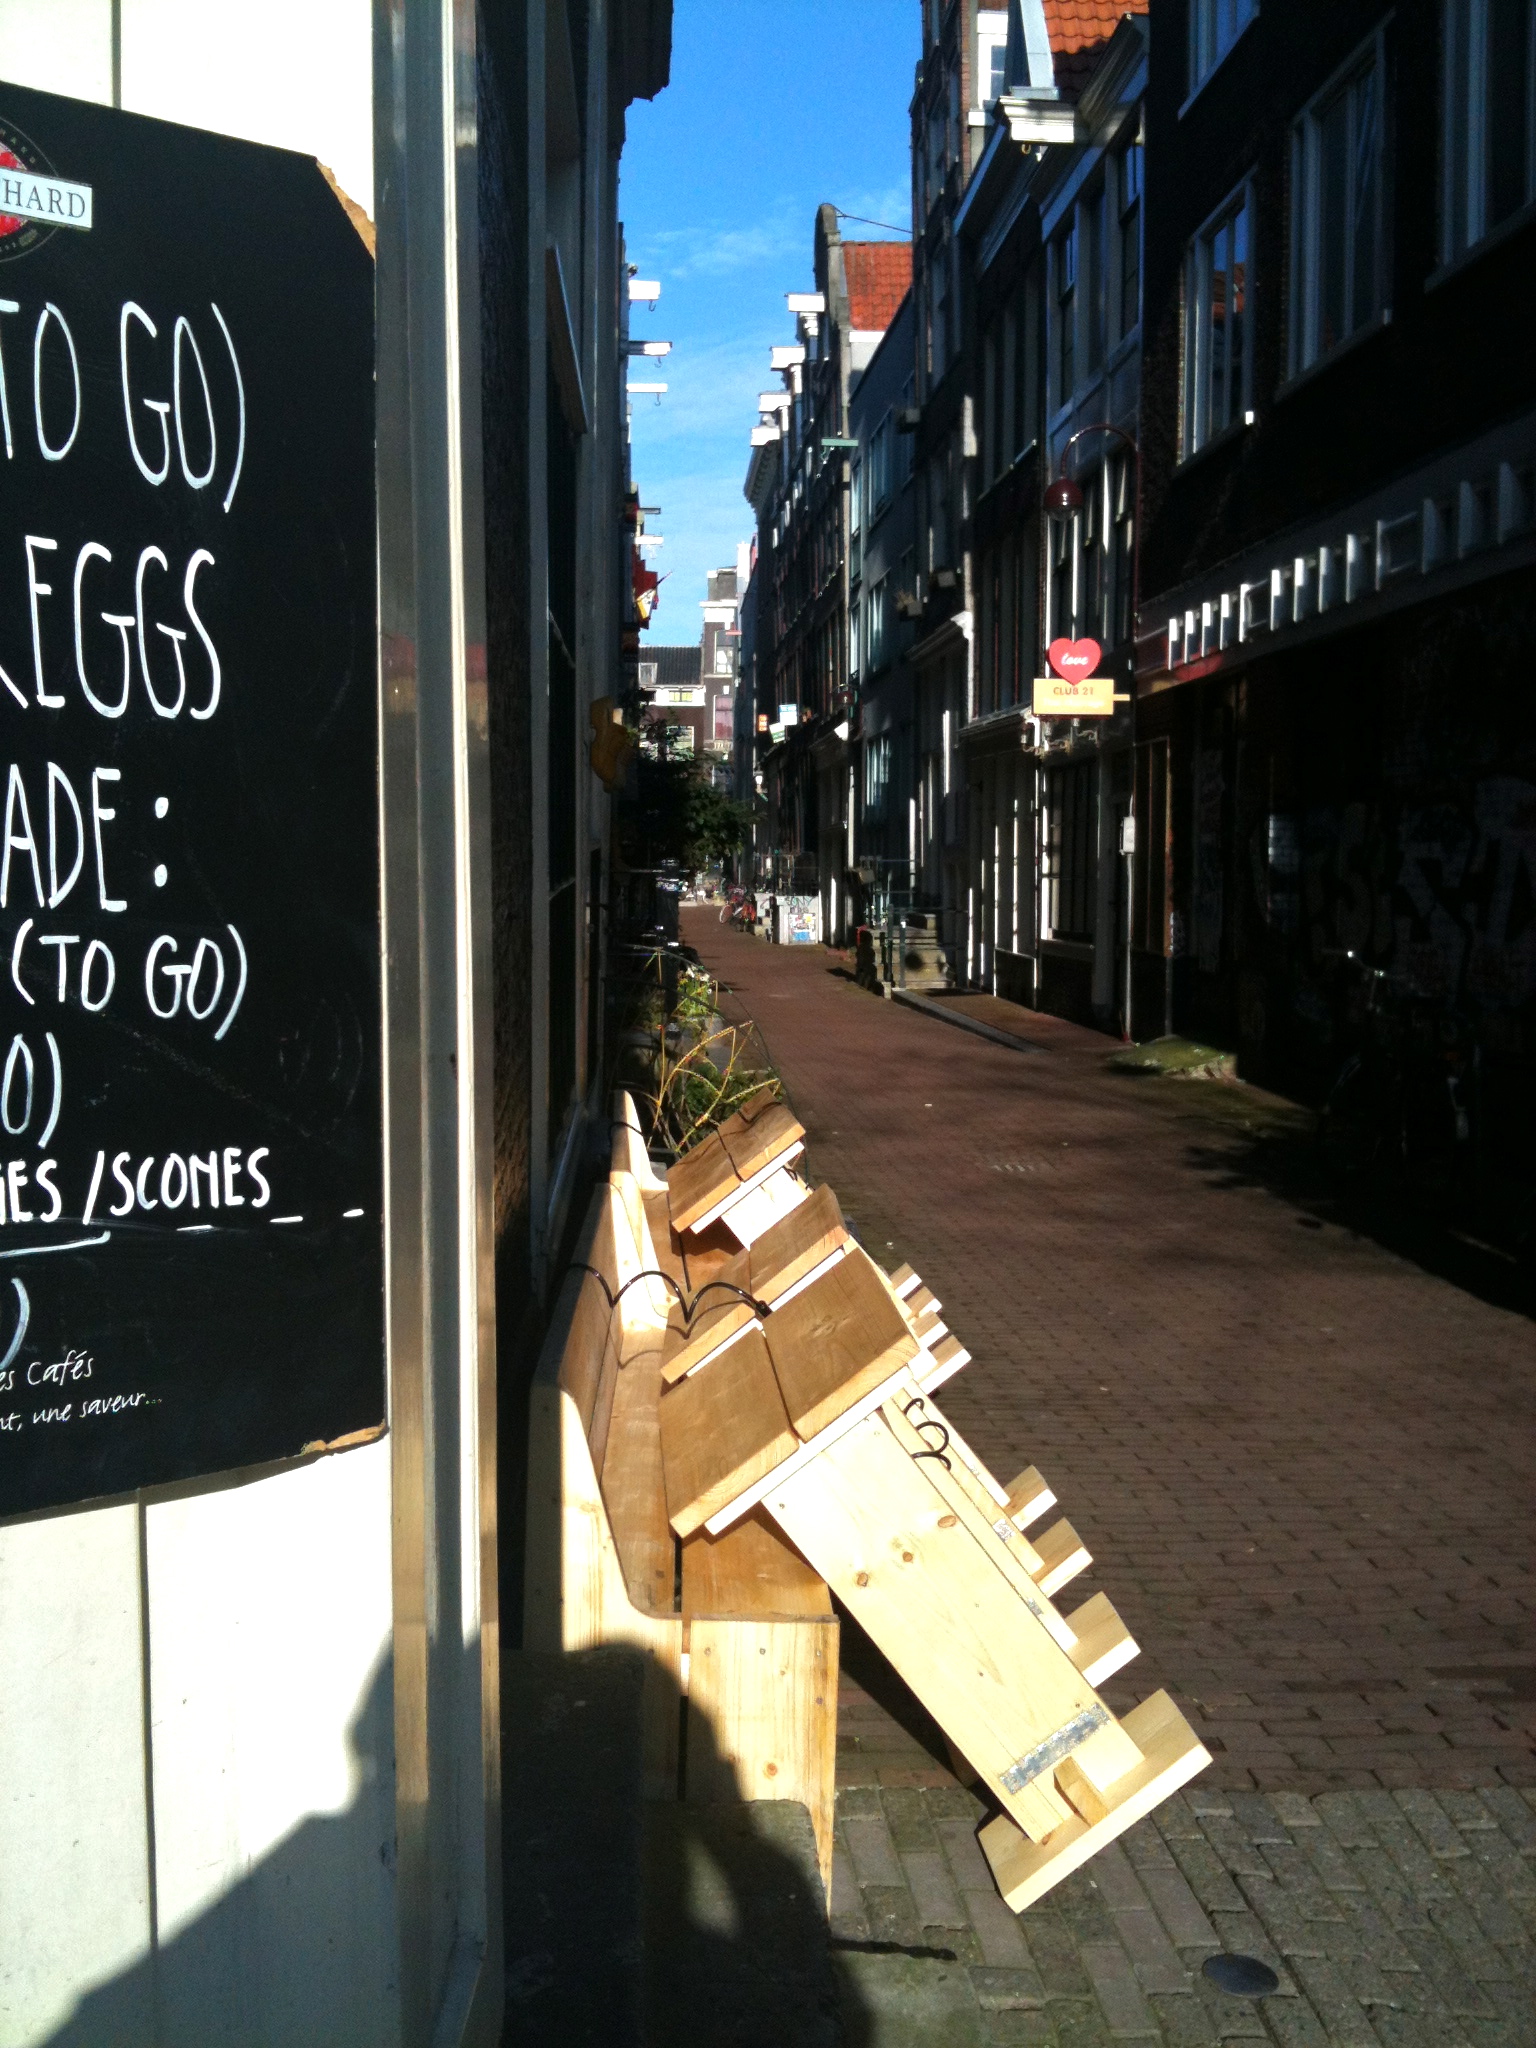 HARD
TO GO)
EGGS
ADE:
(TO GO)
O)
/SCONES
)
es Cafés
nt, une saveur...
love
CLUB 21